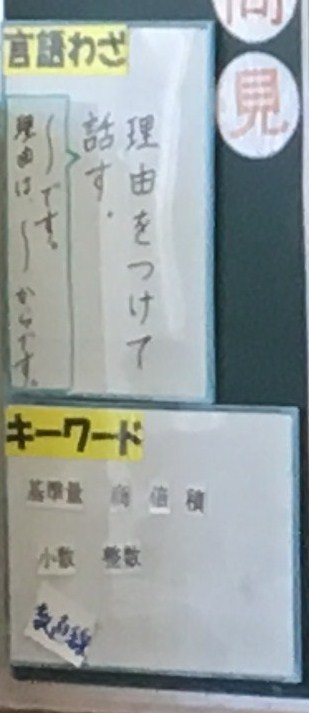 見
言語わざ
理由をつけて
話す。
〜です。
理由は、〜からです。
キーワード
基準量 商 倍 積
小数 整数
数直線